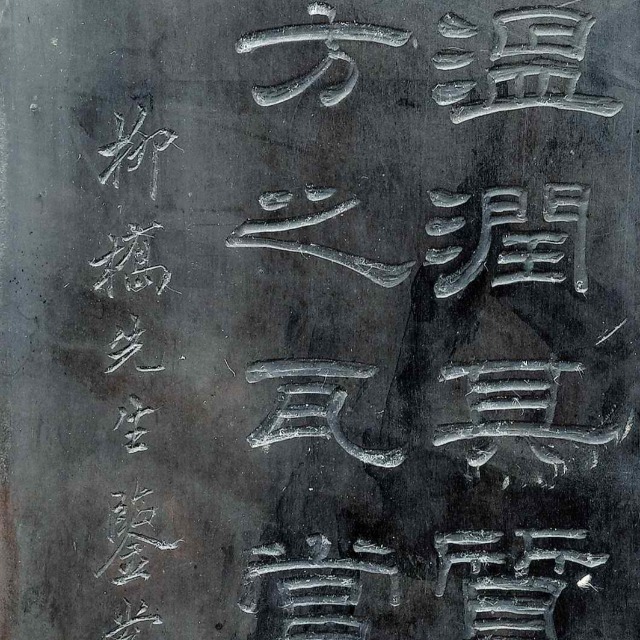 温潤其質
方之瓦當
柳橋先生鑒